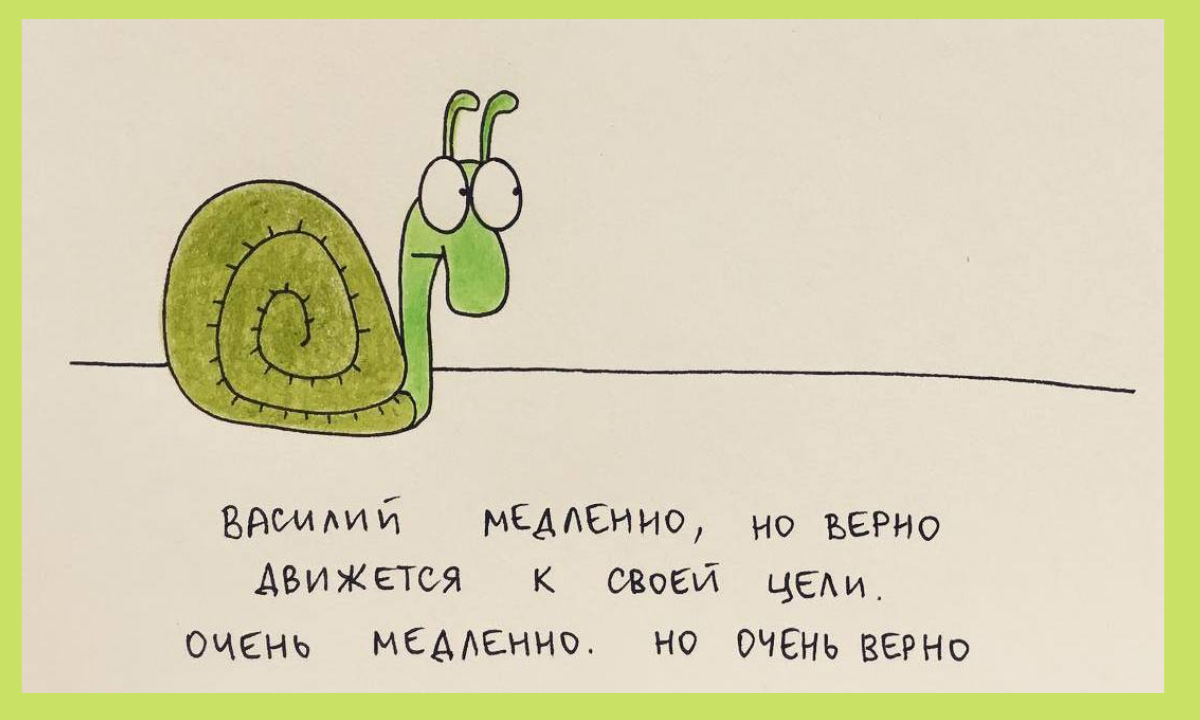 ВАСИЛИЙ МЕДЛЕННО, НО ВЕРНО
ДВИЖЕТСЯ К СВОЕЙ ЦЕЛИ.
ОЧЕНЬ МЕДЛЕННО. НО ОЧЕНЬ ВЕРНО